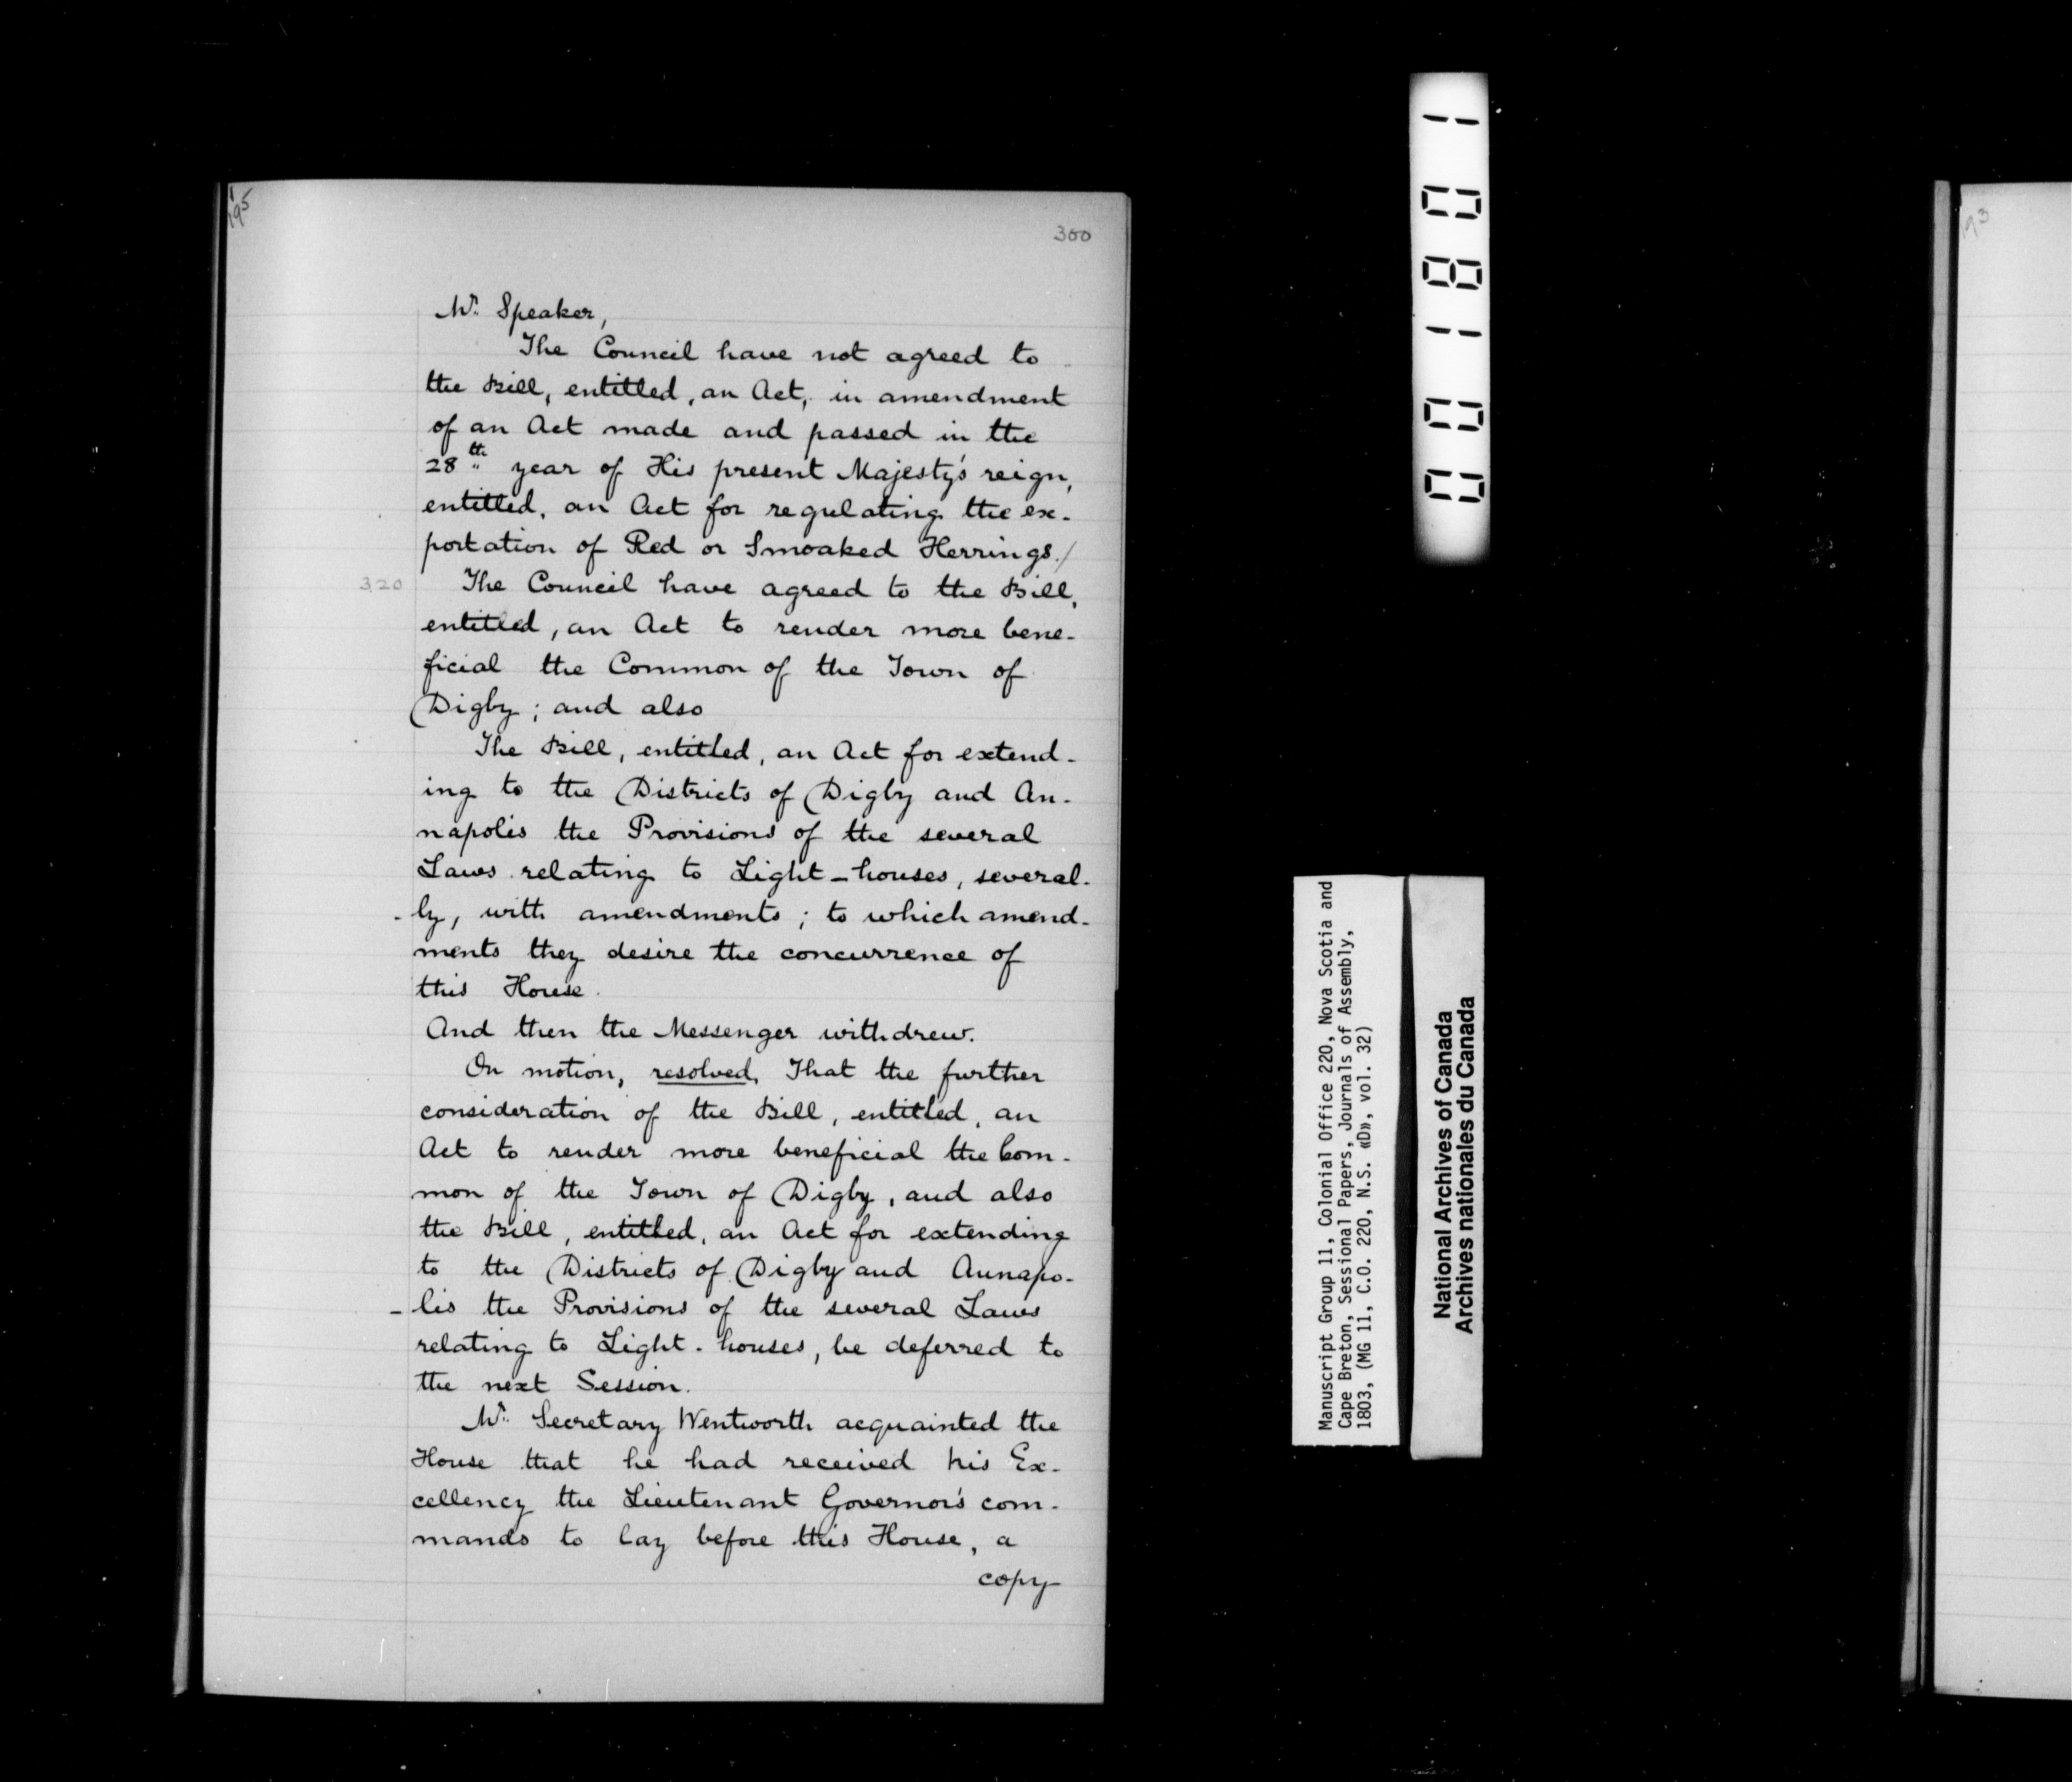 195
300
Mr. Speaker,
The Council have not agreed to
the Bill, entitled, an Act, in amendment
of an Act made and passed in the
28th year of His present Majesty's reign,
entitled, an Act for regulating the ex-
portation of Red or Smoaked Herrings./
320
The Council have agreed to the Bill,
entitled, an Act to render more bene-
ficial the Common of the Town of
Digby; and also
The Bill, entitled, an Act for extend-
ing to the Districts of Digby and An-
napolis the Provisions of the several
Laws relating to Light-houses, several-
-ly, with amendments; to which amend-
ments they desire the concurrence of
this House.
And then the Messenger withdrew.
On motion, resolved, That the further
consideration of the Bill, entitled, an
Act to render more beneficial the Com-
mon of the Town of Digby, and also
the Bill, entitled, an Act for extending
to the Districts of Digby and Annapo-
-lis the Provisions of the several Laws
relating to Light-houses, be deferred to
the next Session.
Mr. Secretary Wentworth acquainted the
House that he had received his Ex-
cellency the Lieutenant Governor's com-
mands to lay before this House, a
copy
001801
Manuscript Group 11, Colonial Office 220, Nova Scotia and
Cape Breton, Sessional Papers, Journals of Assembly,
1803, (MG 11, C.O. 220, N.S. «D», vol. 32)
National Archives of Canada
Archives nationales du Canada
193